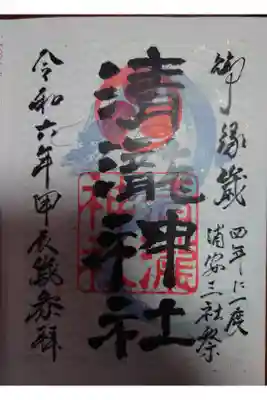 御縁歳
四年に一度
浦安三社祭
清瀧神社
令和六年甲辰歳参拝